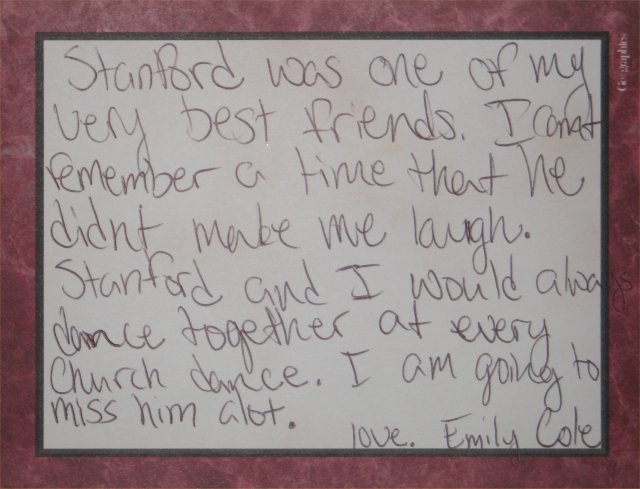 Stanford was one of my
very best friends. I cannot
remember a time that he
didnt make me laugh.
Stanford and I would always
dance together at every
Church dance. I am going to
miss him alot.
love. Emily Cole
Geographics